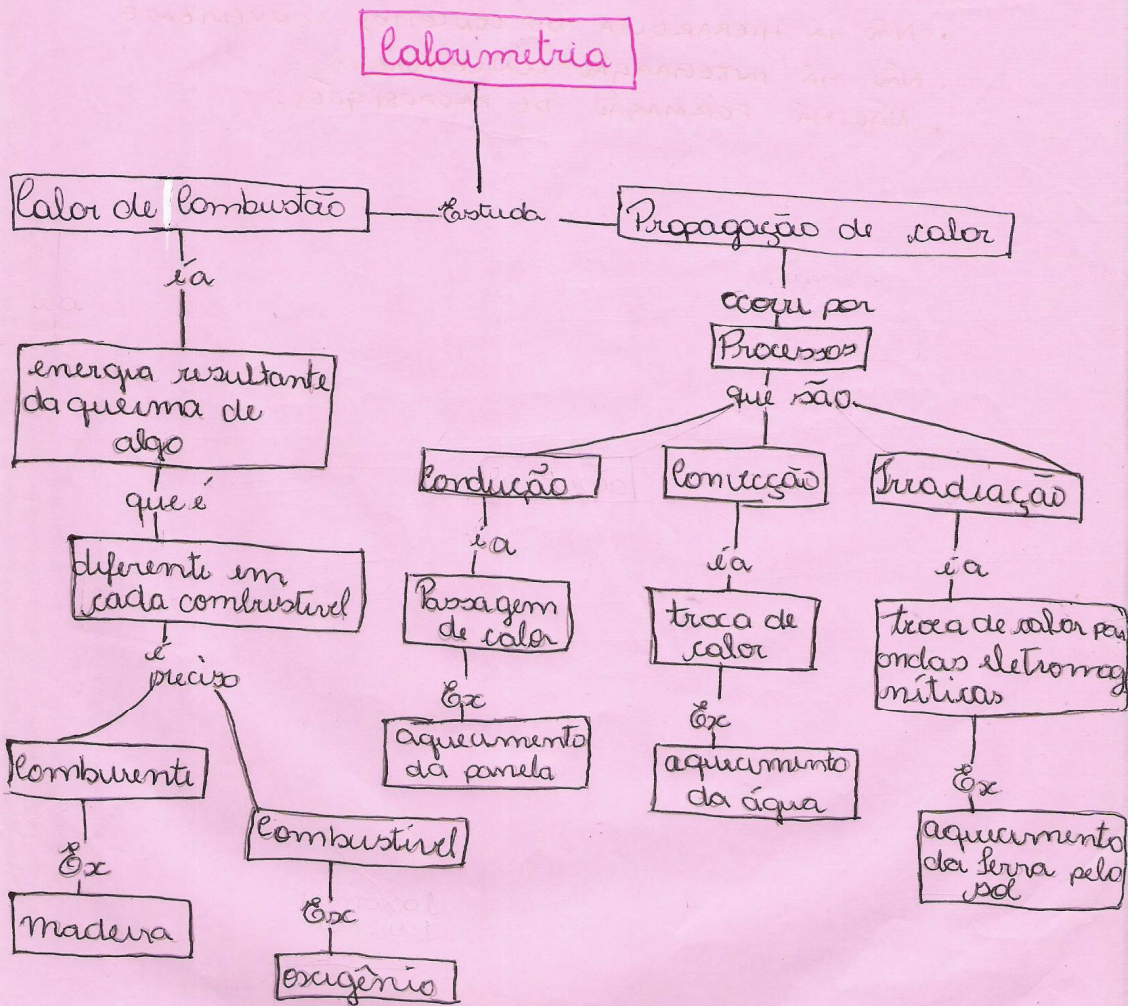 Calorimetria
Calor de Combustão
Estuda
Propagação de calor
é a
energia resultante
da queima de
algo
que é
diferente em
cada combustível
é
preciso
Comburente
Ex
madeira
Combustível
Ex
oxigênio
ocorre por
Processos
que são
Condução
é a
Passagem
de calor
Ex
aquecimento
da panela
Convecção
é a
troca de
calor
Ex
aquecimento
da água
Irradiação
é a
troca de calor por
ondas eletromag
néticas
Ex
aquecimento
da Terra pelo
sol